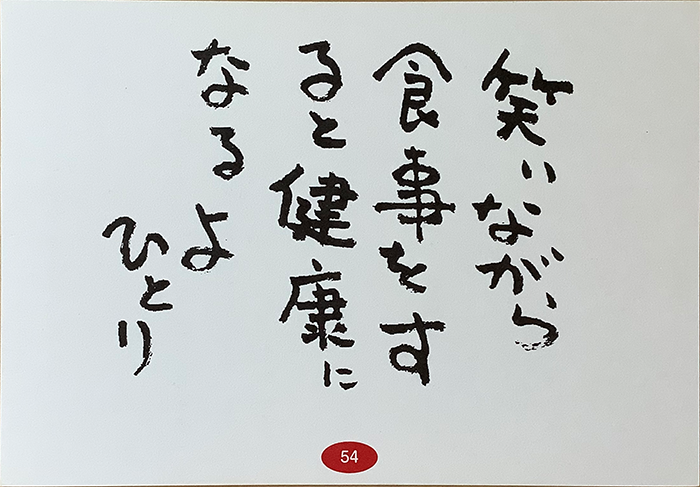 笑いながら
食事をす
ると健康に
なるよ
ひとり
54